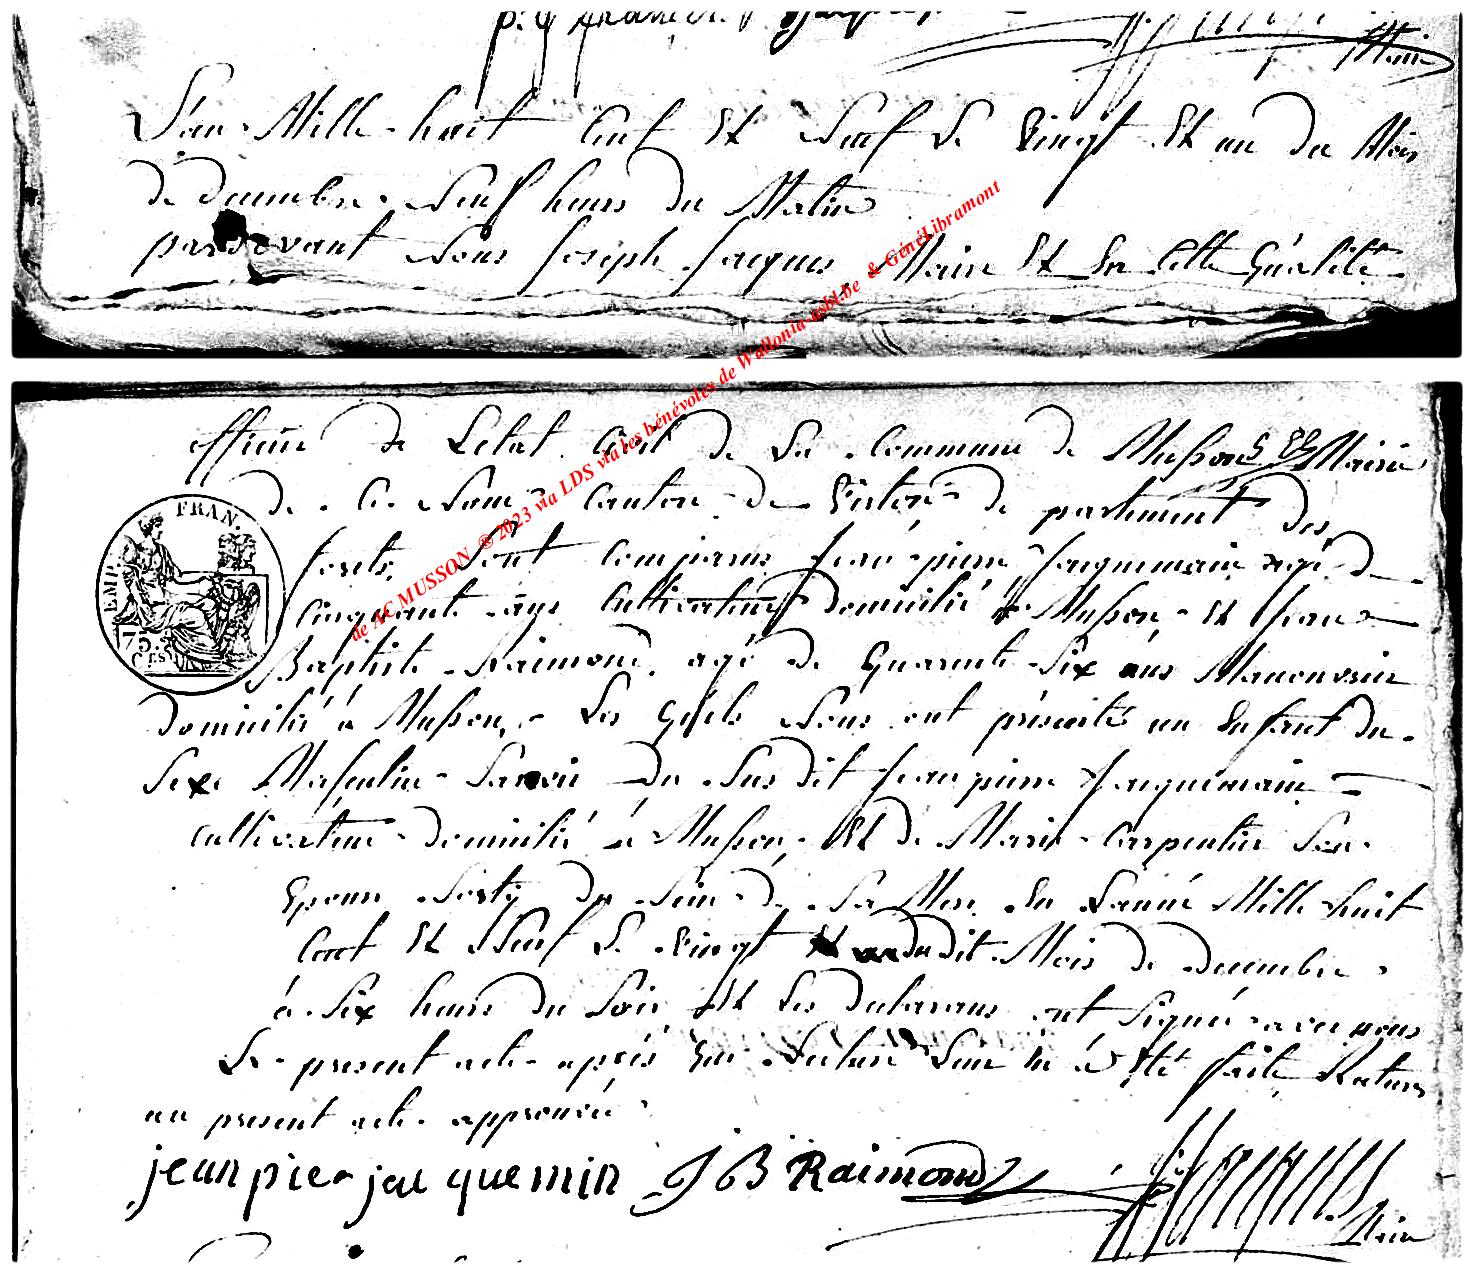 Maire
L'an Mille huit Cent Et Neuf Le Vingt Et un du Mois
de decembre Neuf heures du Matin
pardevant Nous Joseph Jacques Maire Et En Cette Qualité
officier de Letat Civil de La Commune de Musson Mairie
de Ce Nom Canton de Virton de partement des
forets Sont Comparus Jean pierre Jacquemain agé de
Cinquante ans Cultivateur domicilié à Musson Et Jean
Baptiste Raimond agé de Quarente Six ans Manouvrier
domicilié à Musson Les Quels Nous ont présenté un Enfant du
Sexe Masculin Savoir du Sus dit Jean pierre Jacquemain
Cultivateur domicilié à Musson Et de Marie Carpentier Son
Epouse Sorty du Sein de Sa Mere En Lannée Mille huit
Cent Et Neuf Le Vingt Et un dudit Mois de decembre
à Six heures du Soir Et Les declarans ont Signé avec nous
Le present acte après Que Lecture Leur En à Eté faite Ratures
au present acte approuvé
jean pier jacquemin J B Raimond
Maire
EMP. FRAN.
75
CES
de AC MUSSON ® 2023 via LDS via les bénévoles de Wallonia-asbl.be & GénéLibramont